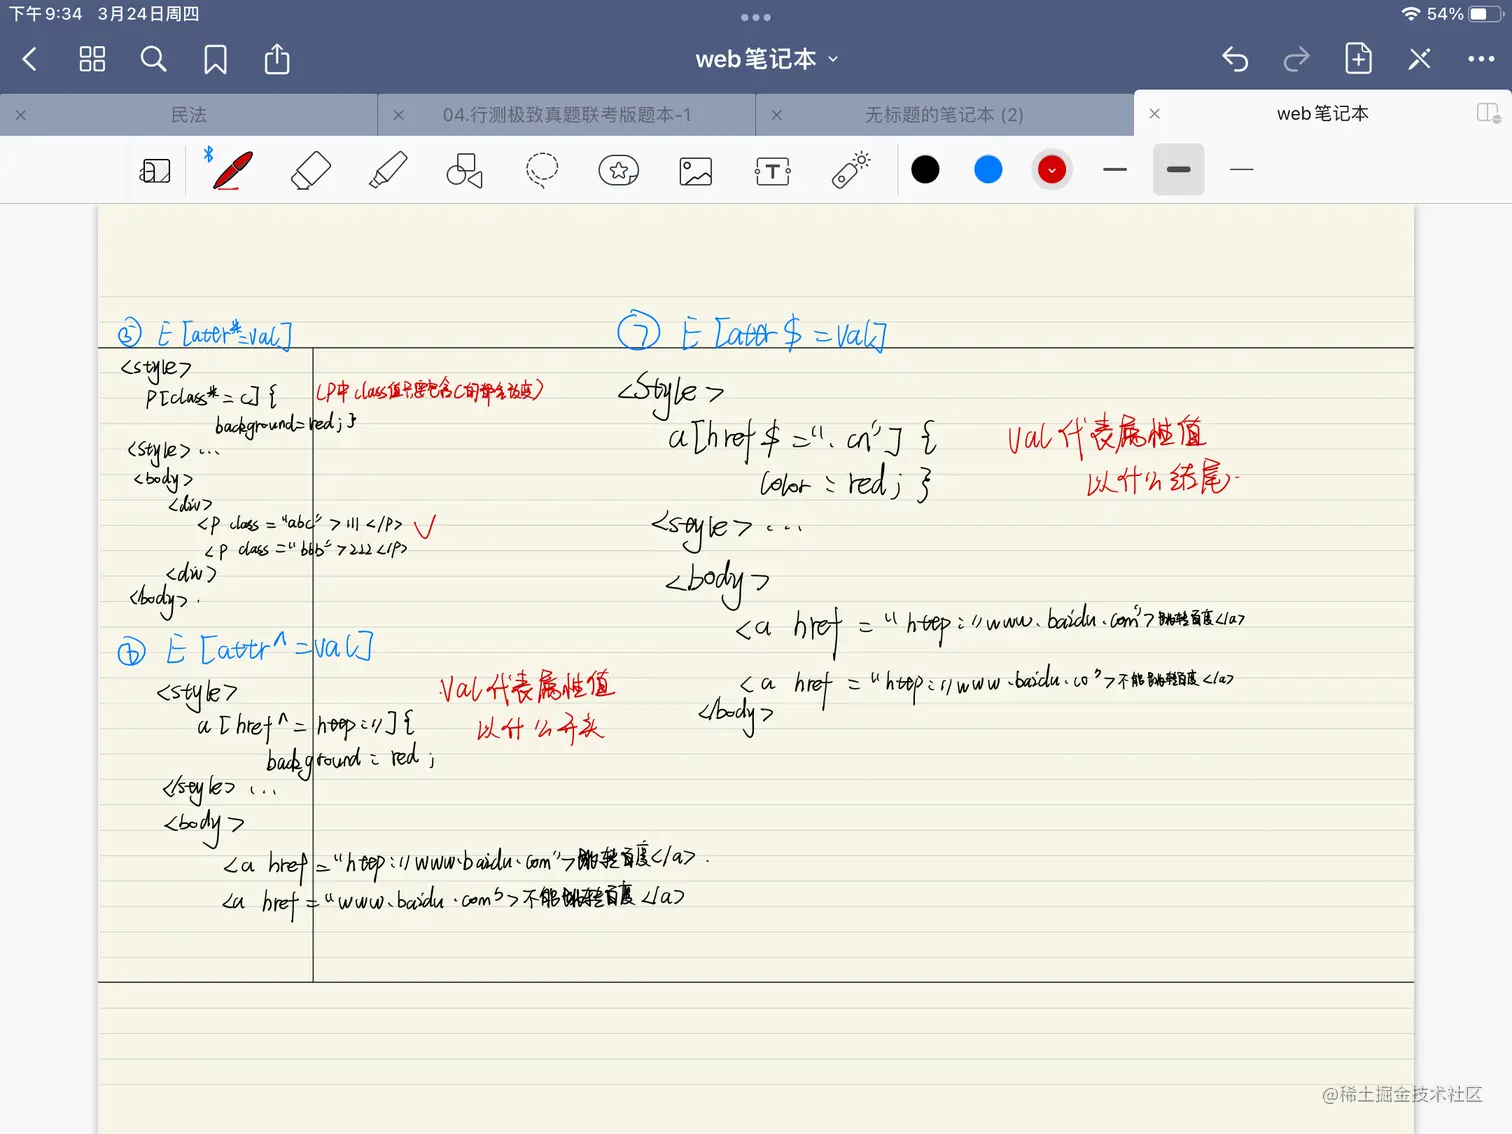 下午9:34 3月24日周四
54%
web笔记本
民法
04.行测极致真题联考版题本-1
无标题的笔记本 (2)
web笔记本
⑤ E[attr*=val]
<style>
P[class*=c]{
(P中class值只要包含c的都会改变)
background=red;}
<style>...
<body>
<div>
<P class="abc">111</P> ✓
<P class="bbb">222</P>
<div>
</body>.
⑥ E[attr^=val]
<style>
a[href^=http://]{
background:red;
val代表属性值
以什么开头
</style>...
<body>
<a href="http://www.baidu.com">跳转百度</a>.
<a href="www.baidu.com">不能跳转百度</a>
⑦ E[attr$=val]
<Style>
a[href$=".cn"]{
color:red;}
val代表属性值
以什么结尾.
<style>...
<body>
<a href="http://www.baidu.com">跳转百度</a>
<a href="http://www.baidu.co">不能跳转百度</a>
</body>
@稀土掘金技术社区